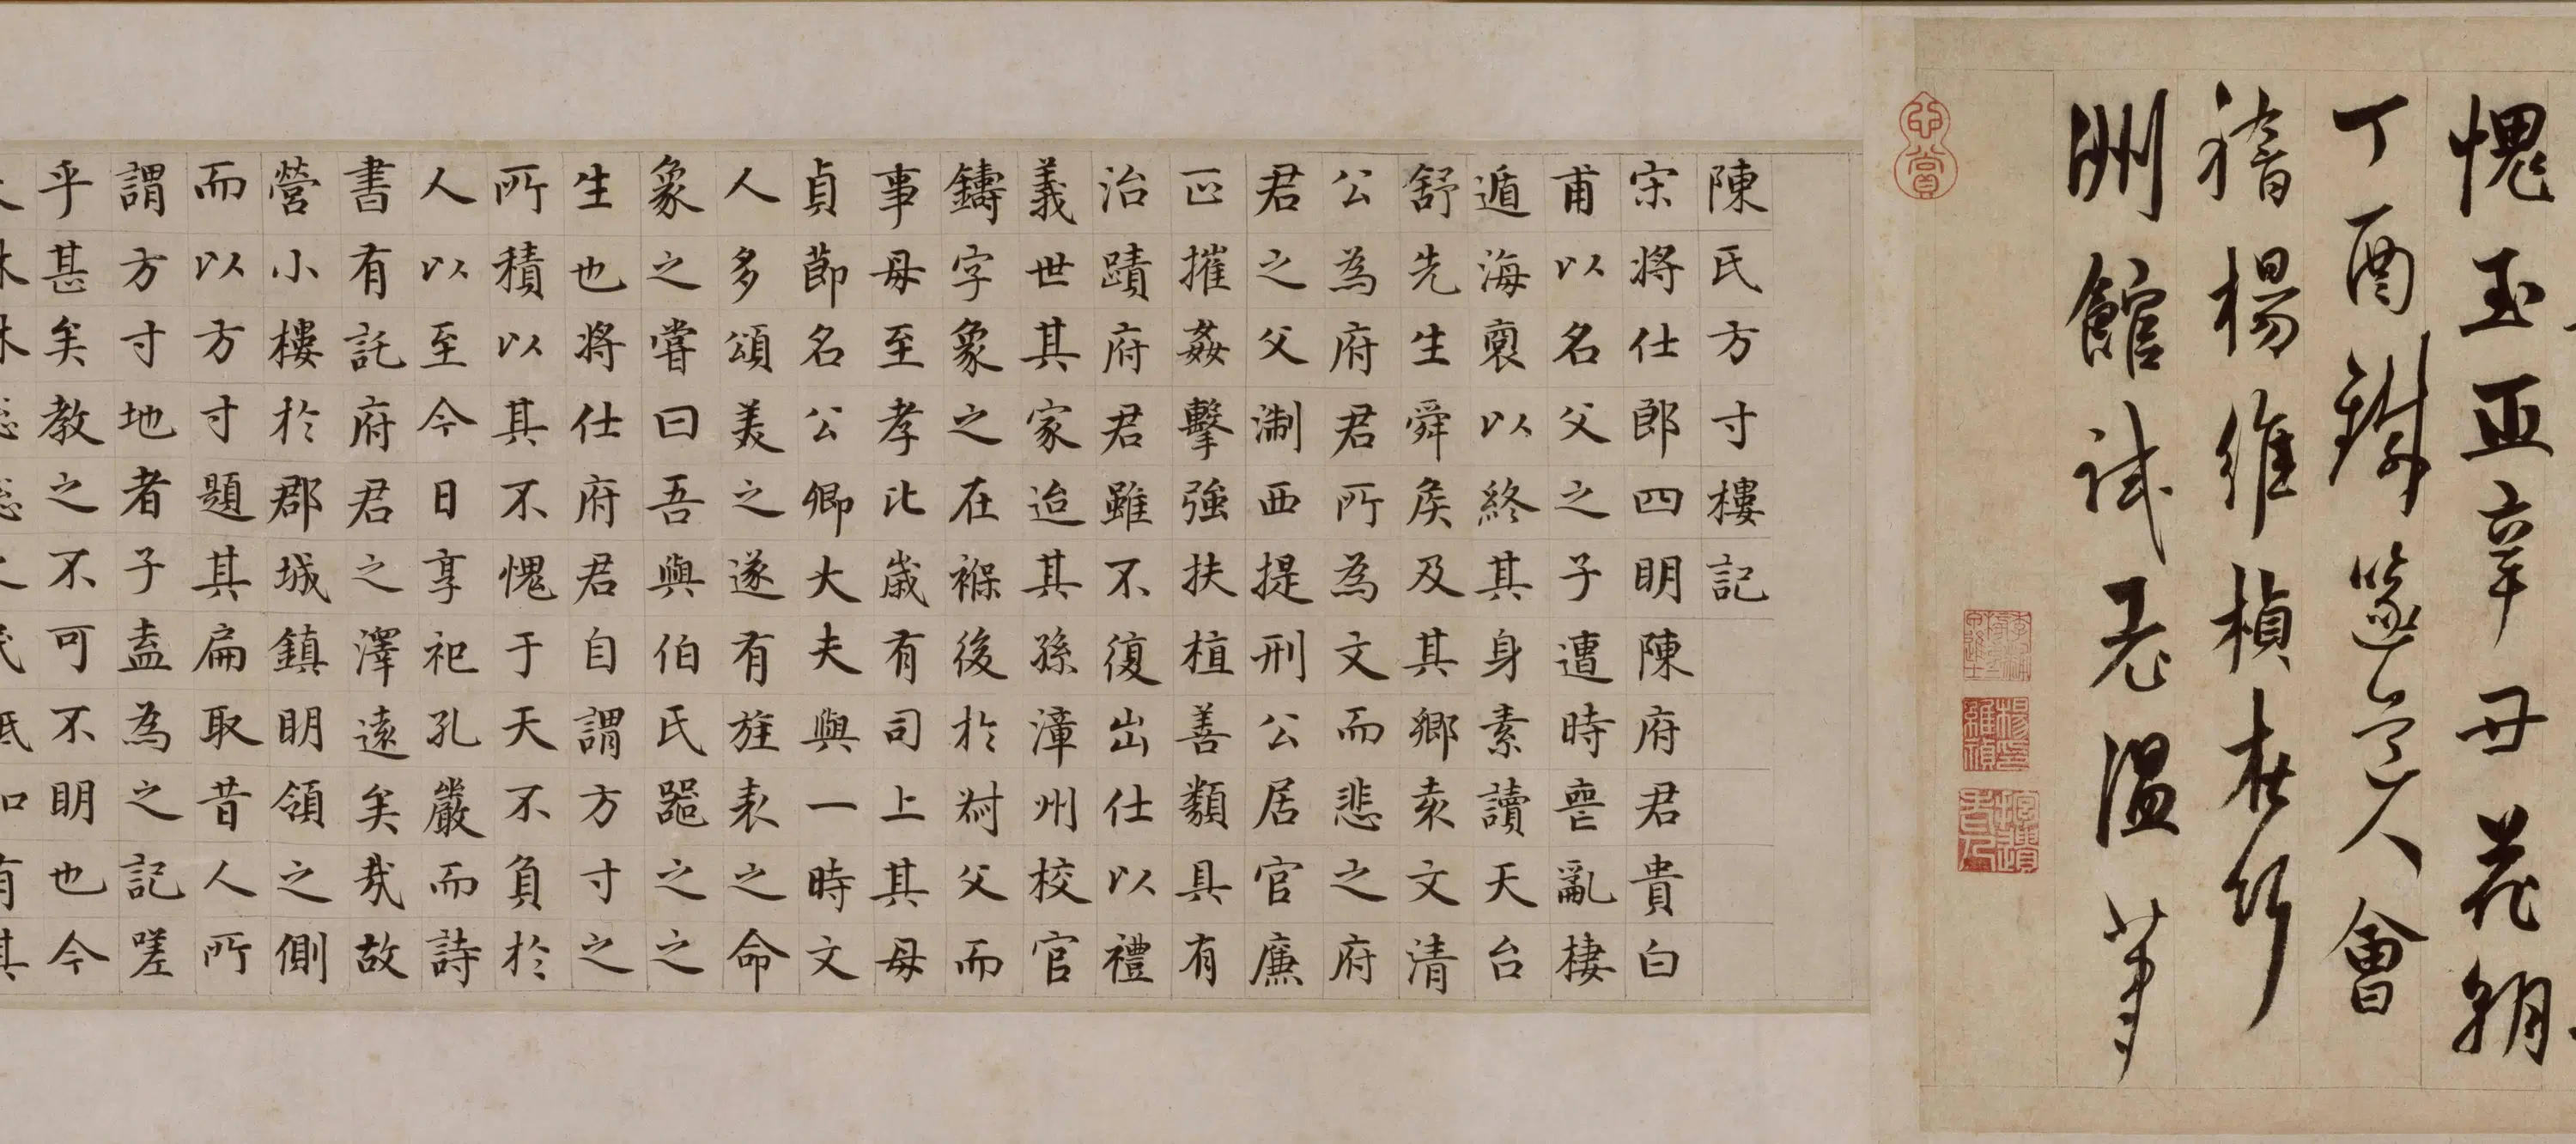 愧玉亚辛丑花朝
丁酉㑹
稽楊維楨在
洲館試老温筆
陳氏方寸樓記
宋將仕郎四明陳府君貴白
甫以名父之子遭時喪亂棲
遁海裔以終其身素讀天台
舒先生舜矦及其鄉袁文清
公為府君所為文而悲之府
君之父淛西提刑公居官廉
正摧姦擊強扶植善類具有
治蹟府君雖不復出仕以禮
義世其家迨其孫漳州校官
鑄字象之在褓後於父而
事母至孝比歲有司上其母
貞節名公卿大夫與一時文
人多頌美之遂有旌表之命
象之嘗曰吾與伯氏噐之之
生也將仕府君自謂方寸之
所積以其不愧于天不負於
人以至今日享祀孔嚴而詩
書有託府君之澤遠矣哉故
營小樓於郡城鎮明領之側
而以方寸題其扁取昔人所
謂方寸地者子盍為之記嗟
乎甚矣教之不可不明也今